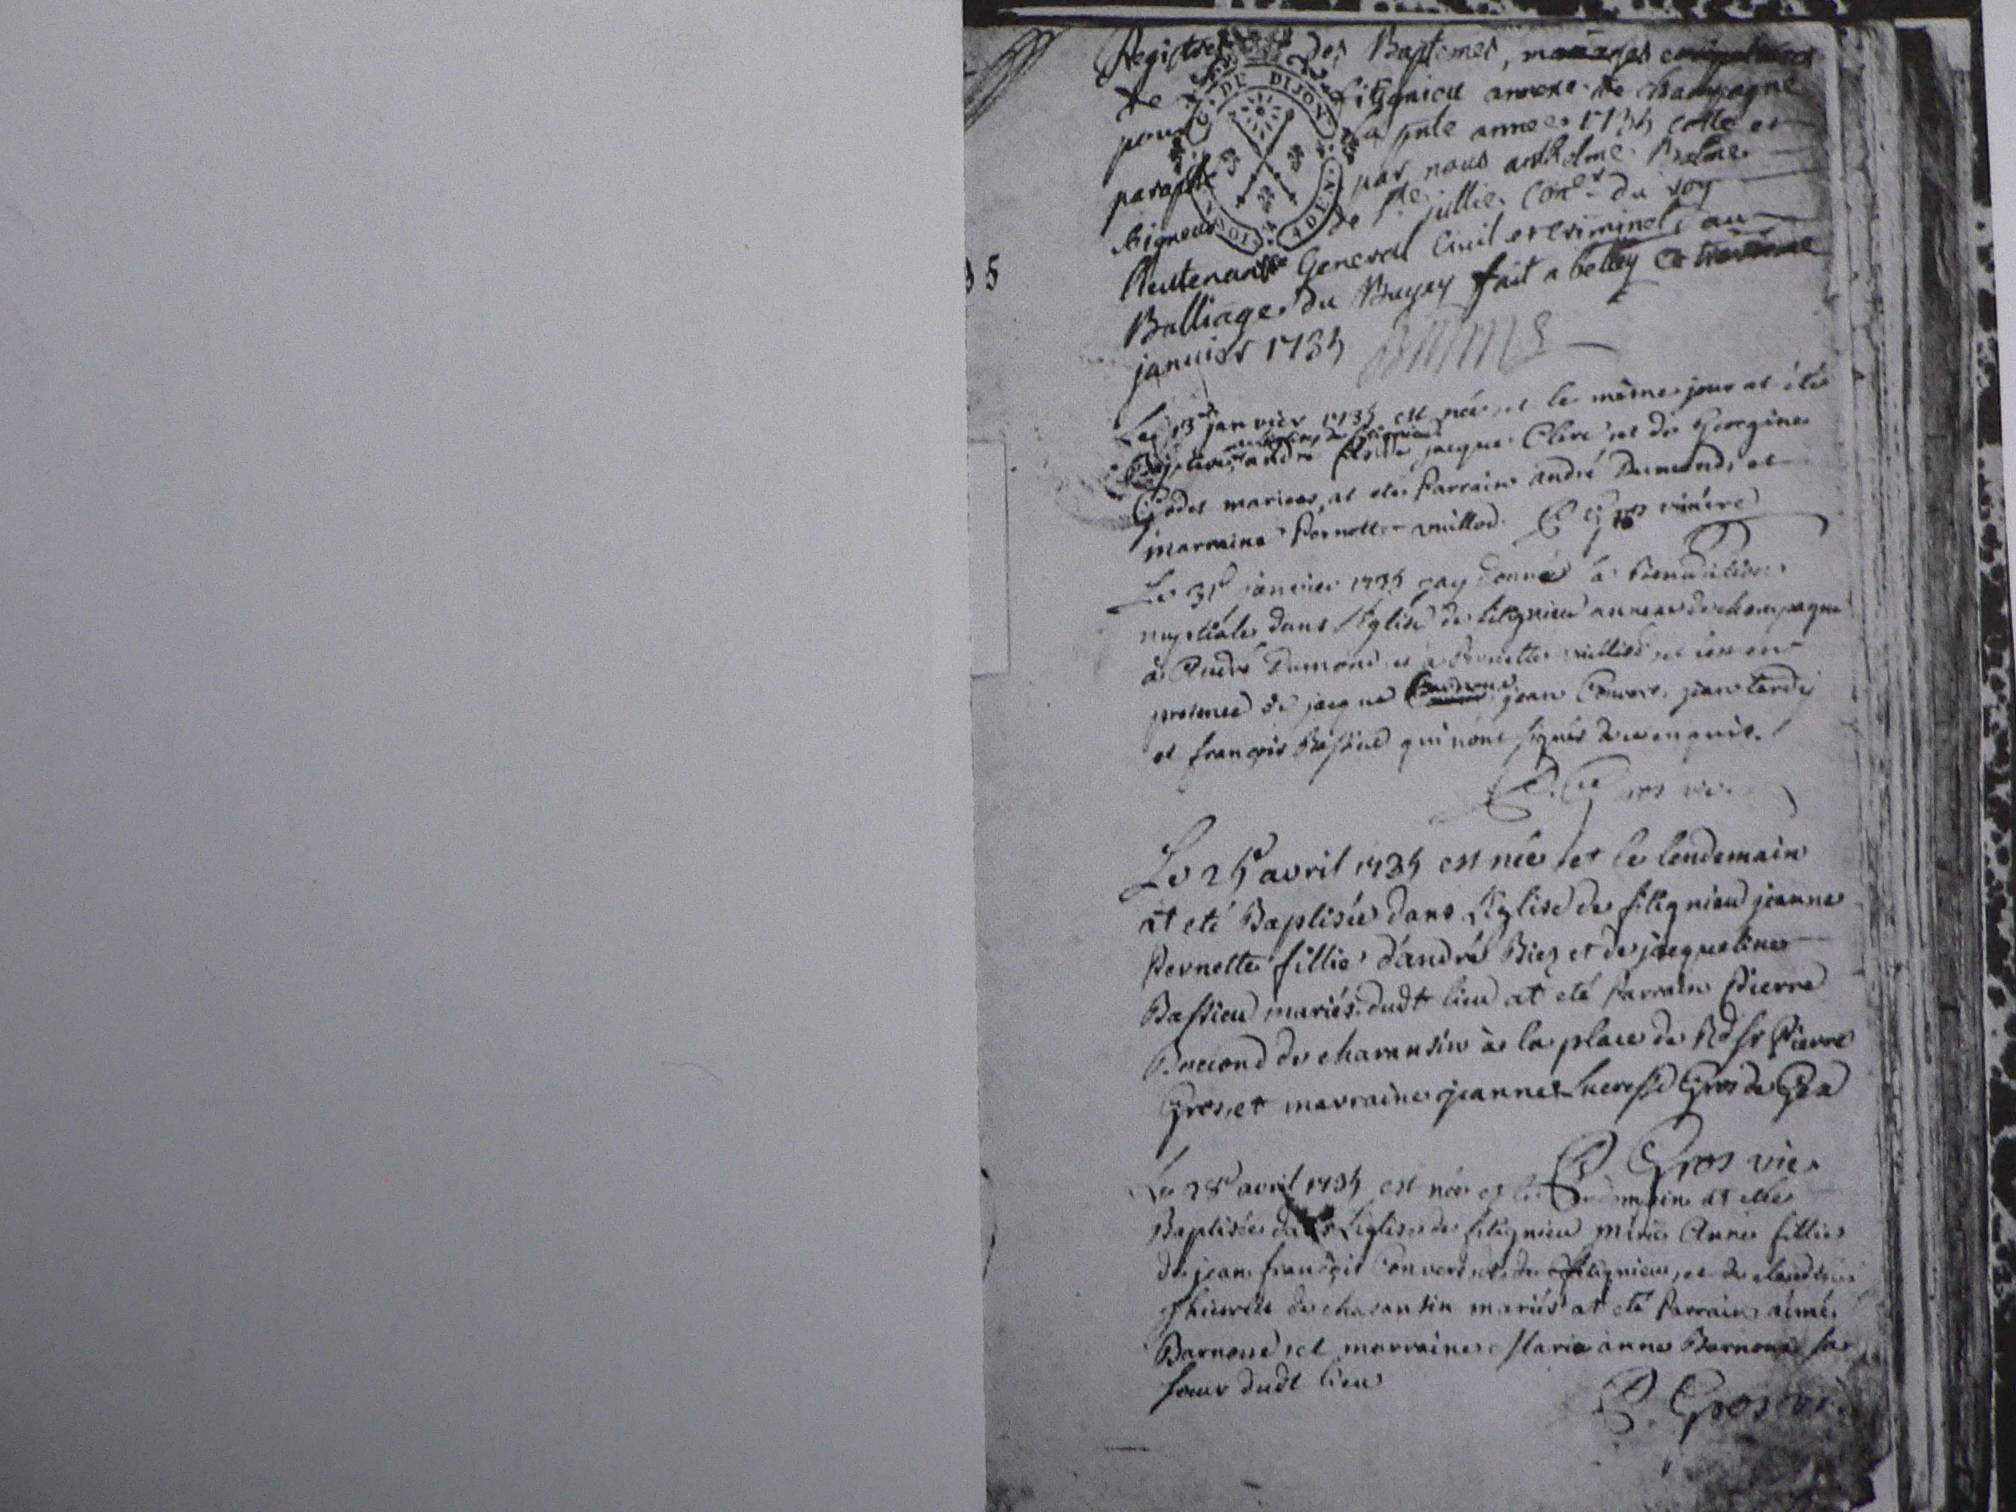 Registre des Baptemes, mariages et sepultures
de fitignieu annexe de champagne
pour la pnte année 1735 cotté et
paraphé par nous anthelme Balme
seigneur de Ste jullie Coner du roy
lieutenant General Civil et criminel au
Balliage du Bugey fait a belley ce troisieme
janvier 1735
DE DIJON
35
Le 13e janvier 1735 est née et le même jour at été
Baptisé andré fils de jacque Clerc et de Georgine
Godet mariees, at eté Parrain andré Dumond, et
marraine Pernette vuillod. P Gros vicaire
Le 31e janvier 1735 jay donné la Benediction
nuptiale dans léglise de fitignieu annexe de champagne
à André Dumond et à Pernette vuilliod et ce en
presence de jacque jean Convert, jean tardy
et françois Bassieu qui nont signés de ce enquis.
P. Gros vic.
Le 25e avril 1735 est née et le lendemain
at eté Baptisée dans Léglise de fitignieu jeanne
Pernette fillie d'andré Biez et de jacqueline
Bassieu mariés dudt lieu at eté Parrain Pierre
Boccond de charansin à la place de Rd Sr Pierre
Gros, et marraine jeanne Lucresse Gros de Gea
P. Gros vic.
Le 28e avril 1735 est née et le lendemain at etée
Baptisée dans Léglise de fitignieu marie Anne fillie
de jean françois Convert de fitignieu, et de claudine
de charansin mariés at eté Parrain aimé
Barnoud et marraine Marie anne Barnoud sa
soeur dudt lieu
P. Gros vi.